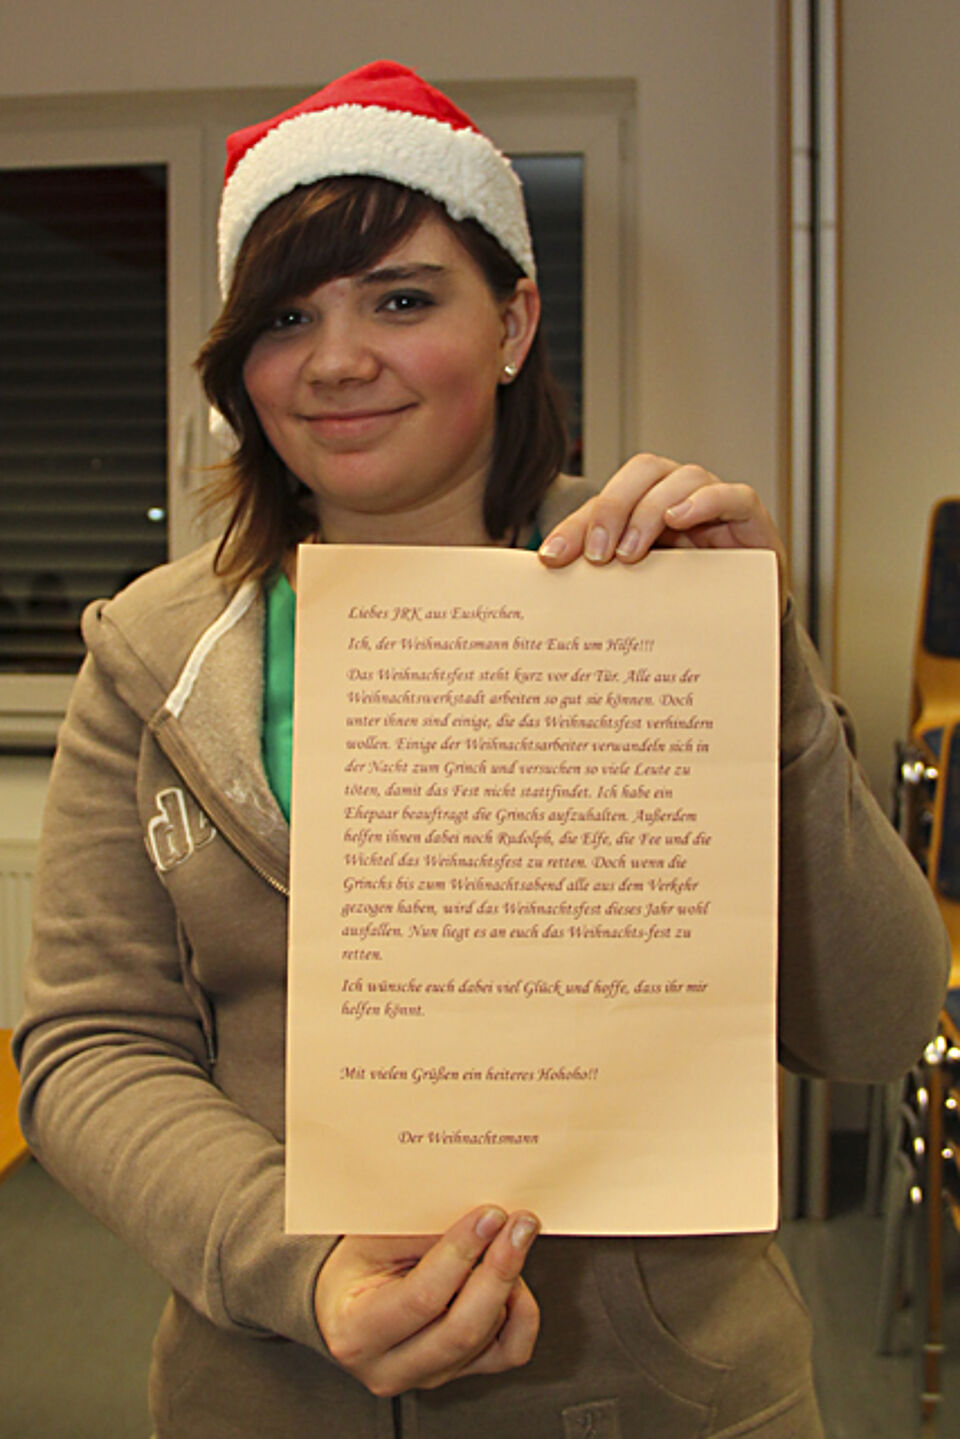 Liebes JRK aus Euskirchen,
Ich, der Weihnachtsmann bitte Euch um Hilfe!!!
Das Weihnachtsfest steht kurz vor der Tür. Alle aus der
Weihnachtswerkstadt arbeiten so gut sie können. Doch
unter ihnen sind einige, die das Weihnachtsfest verhindern
wollen. Einige der Weihnachtsarbeiter verwandeln sich in
der Nacht zum Grinch und versuchen so viele Leute zu
töten, damit das Fest nicht stattfindet. Ich habe ein
Ehepaar beauftragt die Grinchs aufzuhalten. Außerdem
helfen ihnen dabei noch Rudolph, die Elfe, die Fee und die
Wichtel das Weihnachtsfest zu retten. Doch wenn die
Grinchs bis zum Weihnachtsabend alle aus dem Verkehr
gezogen haben, wird das Weihnachtsfest dieses Jahr wohl
ausfallen. Nun liegt es an euch das Weihnachts-fest zu
retten.
Ich wünsche euch dabei viel Glück und hoffe, dass ihr mir
helfen könnt.
Mit vielen Grüßen ein heiteres Hohoho!!
Der Weihnachtsmann